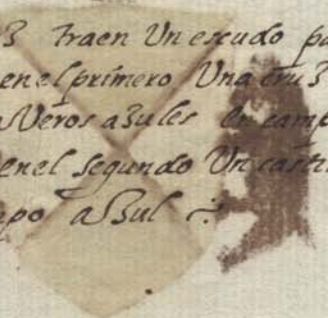 3 traen Un escudo pa
en el primero Una cru3
Veros a3ules en camp
en el segundo Un casti
po a3ul